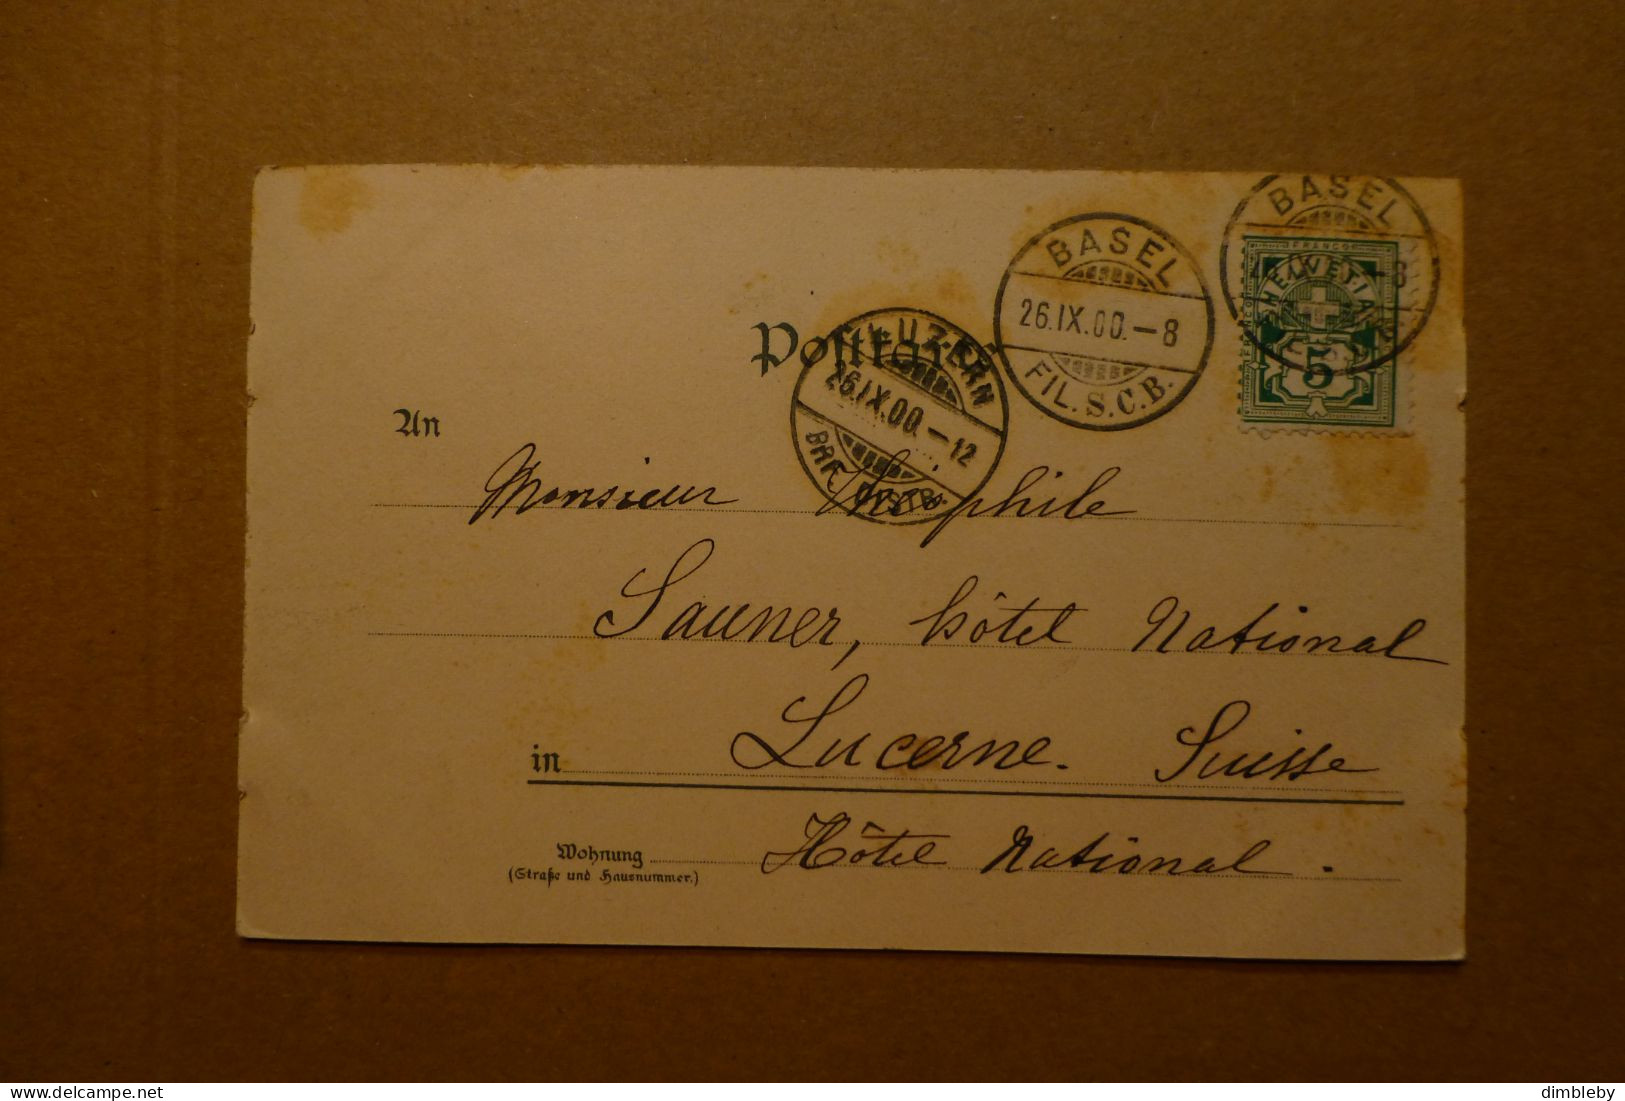 BASEL
26.IX.00.-8
FIL. S.C.B.
BASEL
FRANCO
HELVETIA
5
LUZERN
26.IX.00.-12
Postkarte
An
Monsieur Théophile
Sauner, hôtel National
in Lucerne. Suisse
Wohnung Hôtel National.
(Straße und Hausnummer.)
dimbleby